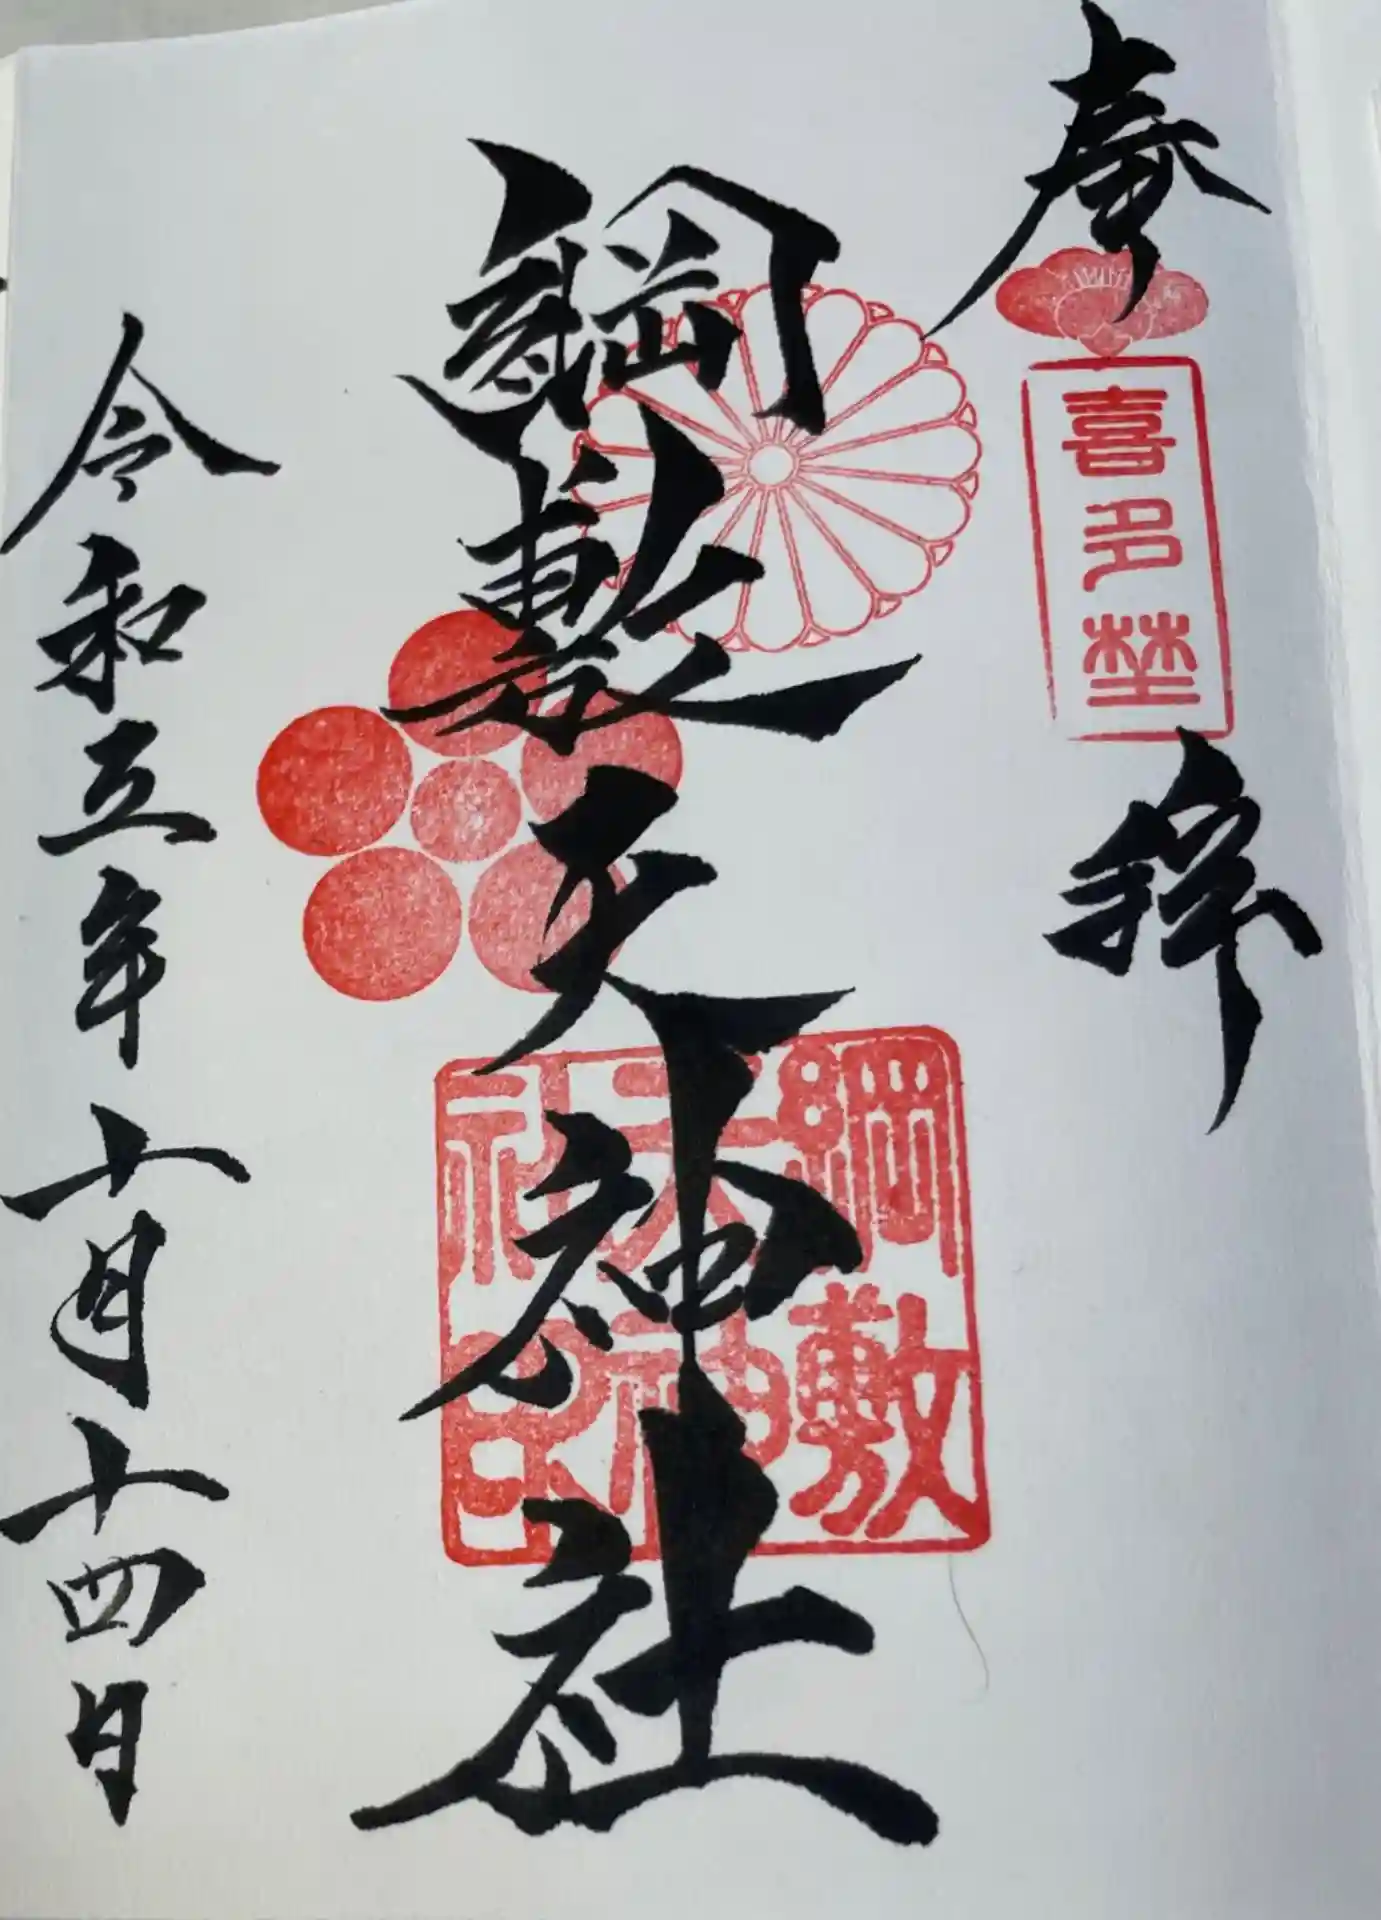 奉拝
喜多埜
綱敷天神社
綱敷
天神
社印
令和五年十月十四日